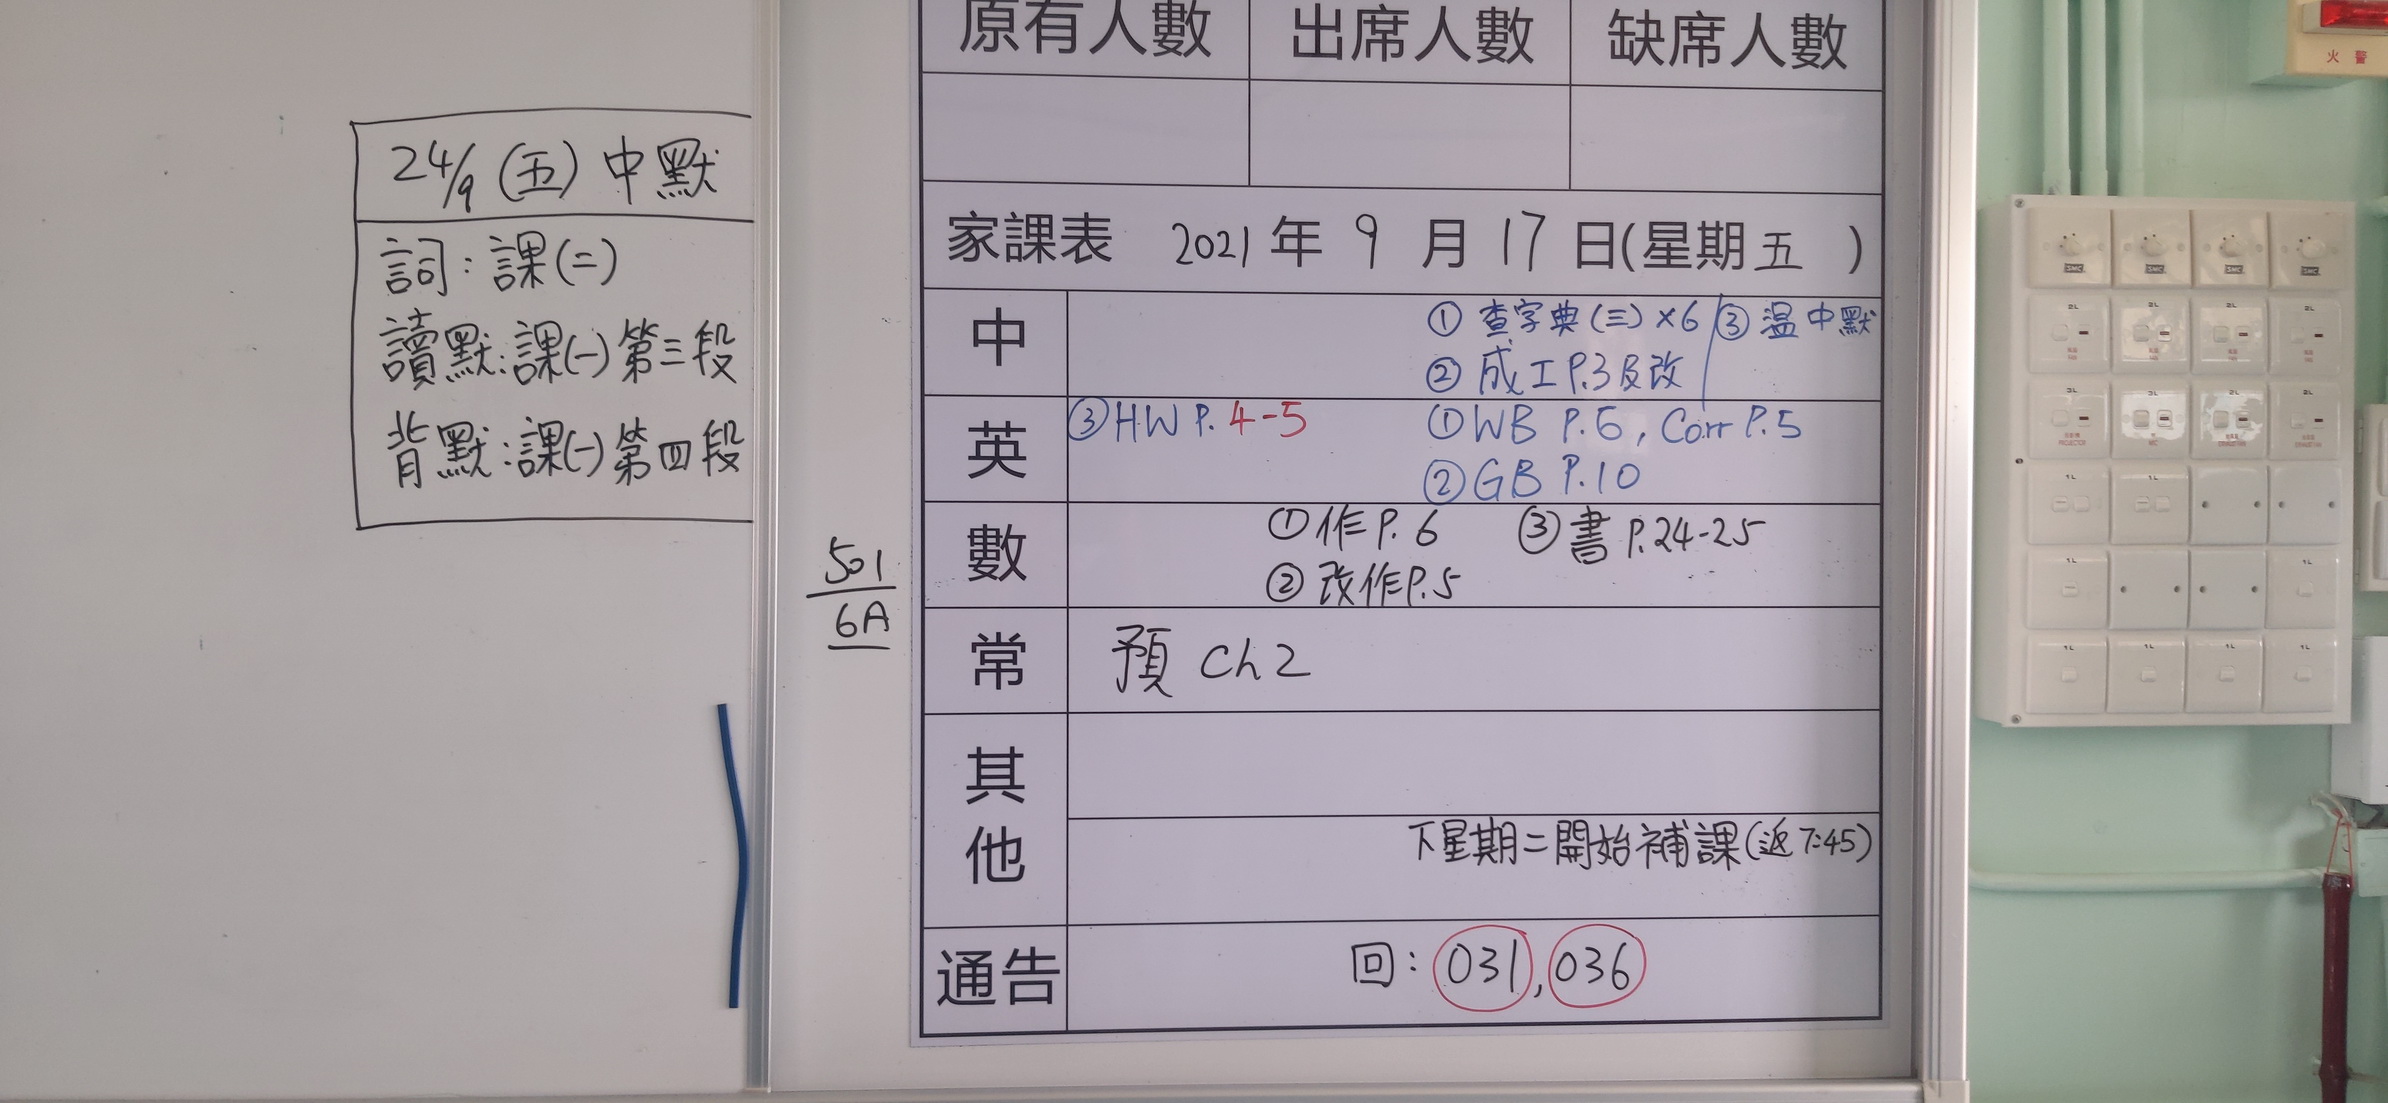 24/9 (五) 中默
詞：課(二)
讀默：課(一)第三段
背默：課(一)第四段
501
6A
原有人數 出席人數 缺席人數
家課表 2021年 9 月 17 日(星期五 )
中 ① 查字典(三)×6 ③ 溫中默
② 成工P.3及改
英 ③HW P. 4-5 ①WB P.6, Corr P.5
②GB P.10
數 ①作P.6 ③書P.24-25
②改作P.5
常 預 Ch 2
其他
下星期二開始補課(返7:45)
通告 回：031, 036
火警